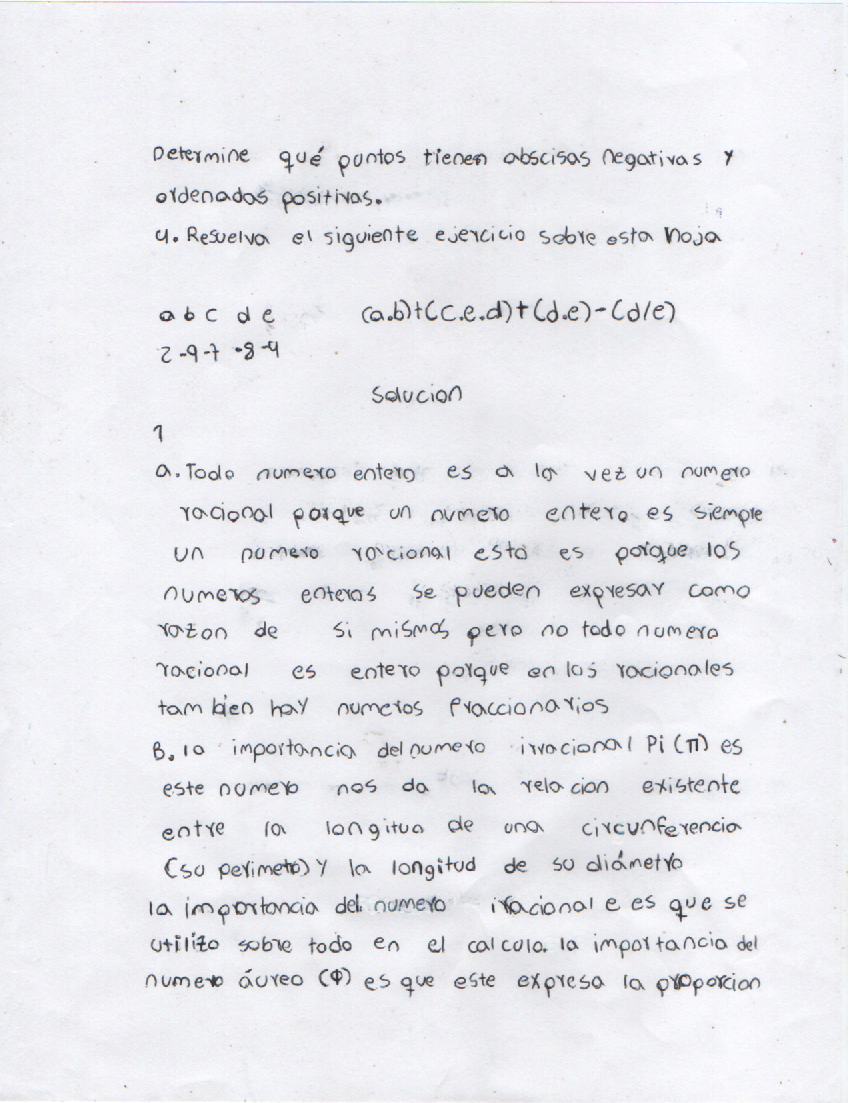 Determine qué puntos tienen abscisas negativas y
ordenados positivas.
4. Resuelva el siguiente ejercicio sobre esta hoja
a b c d e (a.b)+(c.e.d)+(d.e)-(d/e)
2 -9 -7 -8 -4
Solucion
1
a. Todo numero entero es a la vez un numero
racional porque un numero entero es siempre
un numero racional esto es porque los
numeros enteros se pueden expresar como
razon de si mismos pero no todo numero
racional es entero porque en los racionales
tam bien hay numeros fraccionarios
B. la importancia del numero irracional Pi (π) es
este numero nos da la relacion existente
entre la longitud de una circunferencia
(su perimetro) y la longitud de su diámetro
la importancia del numero iracional e es que se
utilizo sobre todo en el calculo. la importancia del
numero áureo (Φ) es que este expresa la proporcion